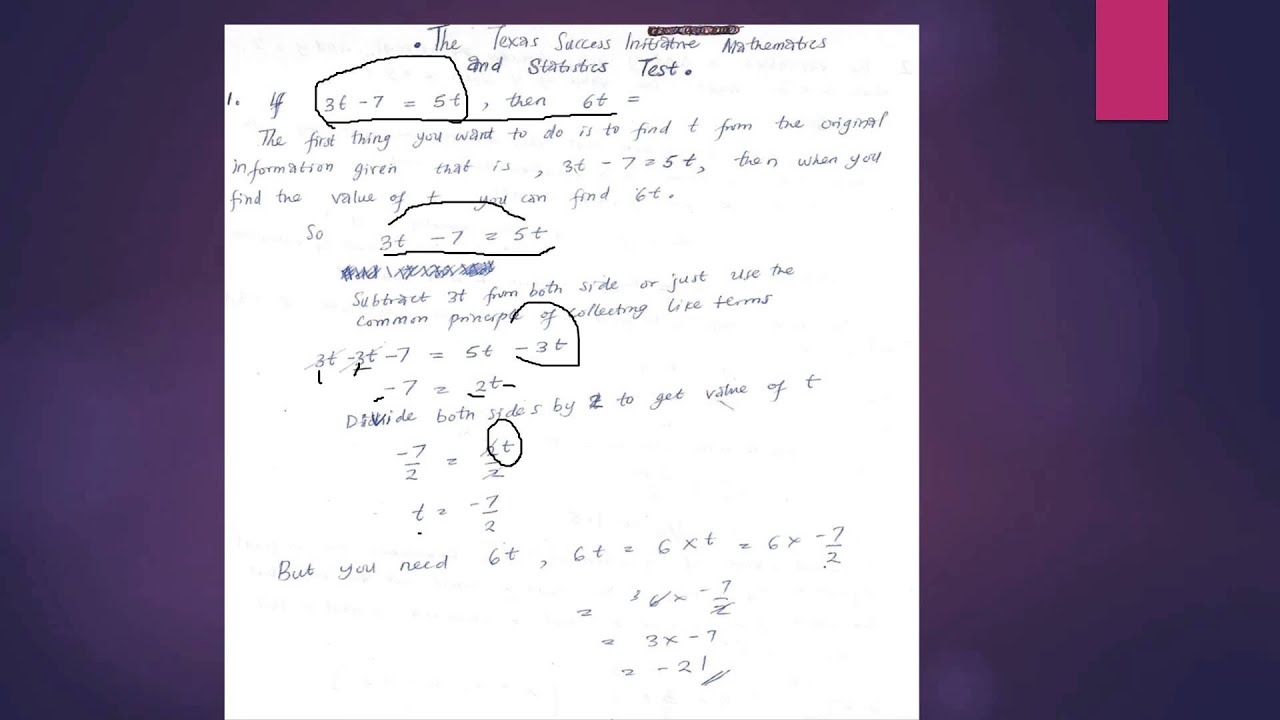 • The Texas Success Initiative Mathematics
and Statistics Test.
1. If 3t - 7 = 5t, then 6t =
The first thing you want to do is to find t from the original
information given that is, 3t - 7 = 5t, then when you
find the value of t you can find 6t.
So 3t - 7 = 5t
Subtract 3t from both side or just use the
common principle of collecting like terms
3t - 3t - 7 = 5t - 3t
-7 = 2t
Divide both sides by 2 to get value of t
-7/2 = 2t/2
t = -7/2
But you need 6t, 6t = 6 × t = 6 × -7/2
= 3 6 × -7/2
= 3 × -7
= -21